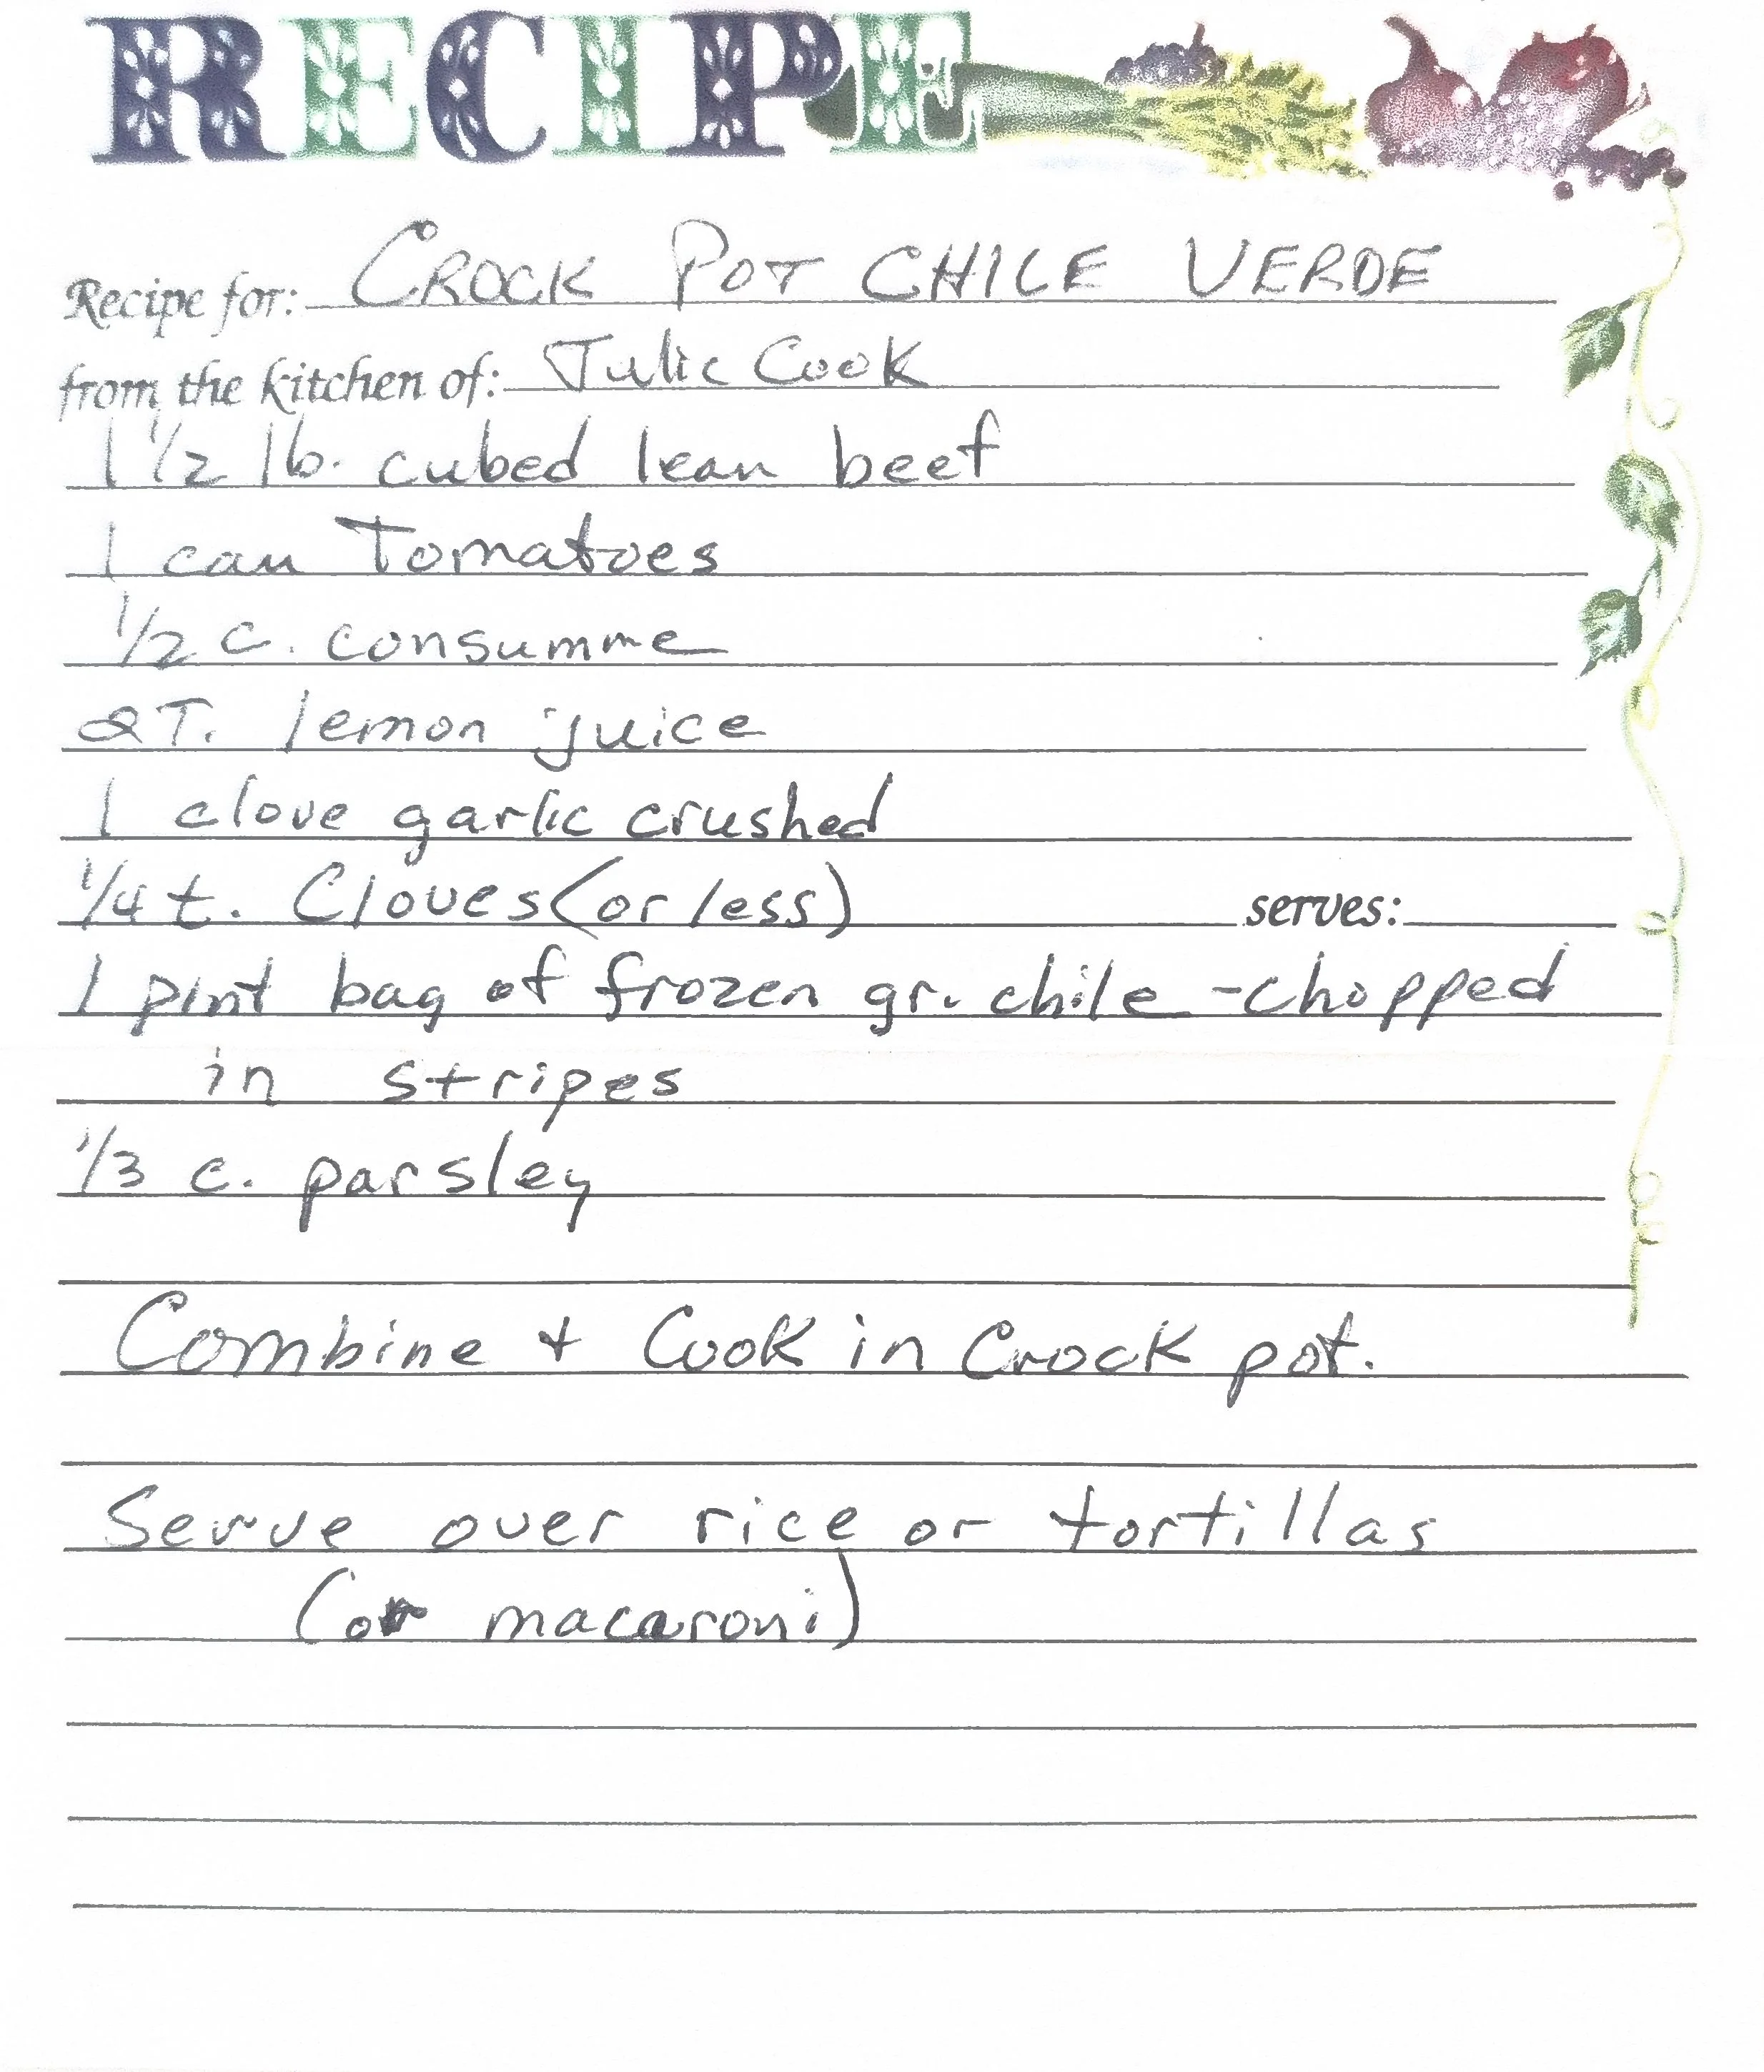 RECIPE
Recipe for: CROCK POT CHILE VERDE
from the kitchen of: Julie Cook
1 1/2 lb. cubed lean beef
1 can Tomatoes
1/2 c. consumme
2T. lemon juice
1 clove garlic crushed
1/4 t. Cloves (or less) serves:
1 pint bag of frozen gr. chile - chopped
in stripes
1/3 c. parsley
Combine + Cook in Crock pot.
Serve over rice or tortillas
(or macaroni)